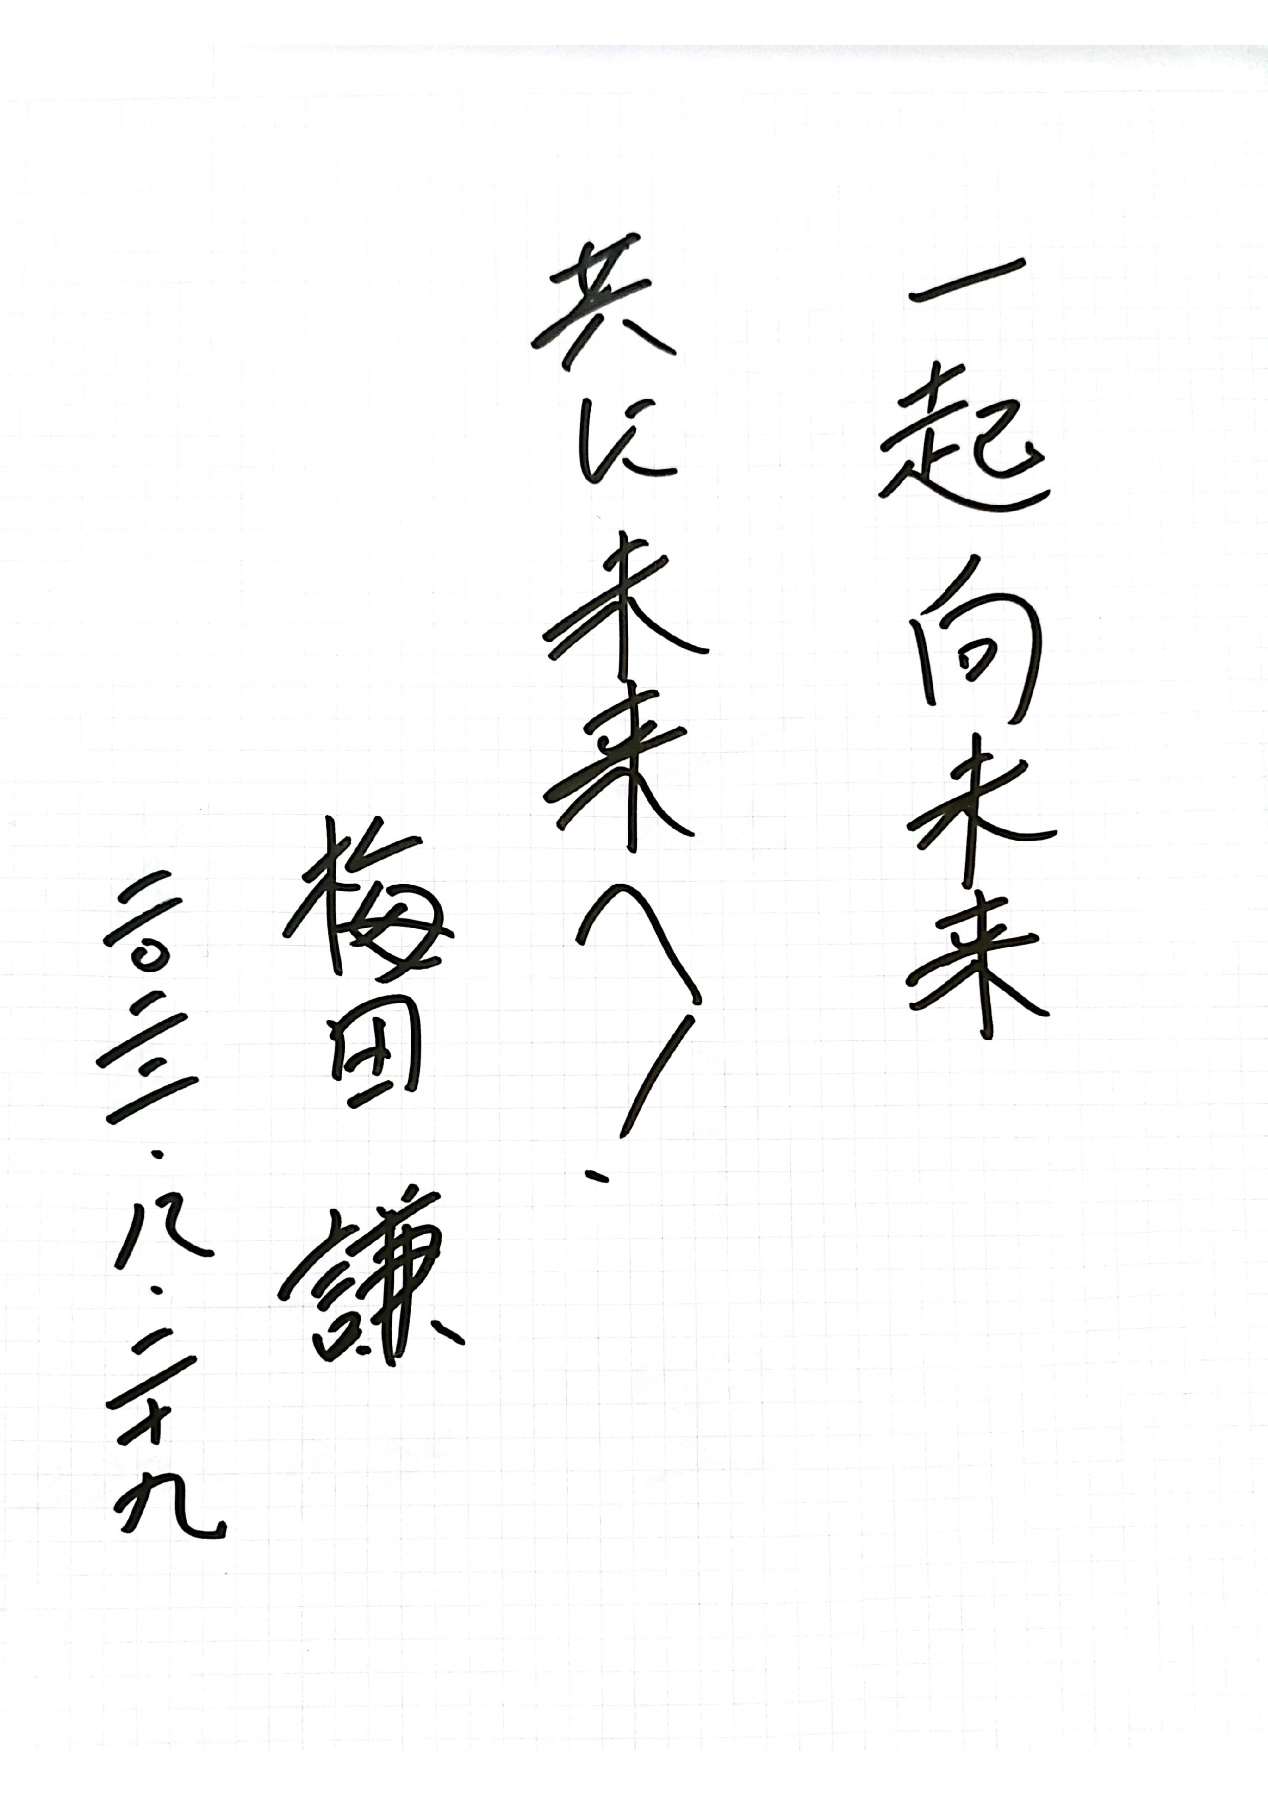 一起向未来
共に未来へ!
梅田 謙
二〇二三.八.二十九